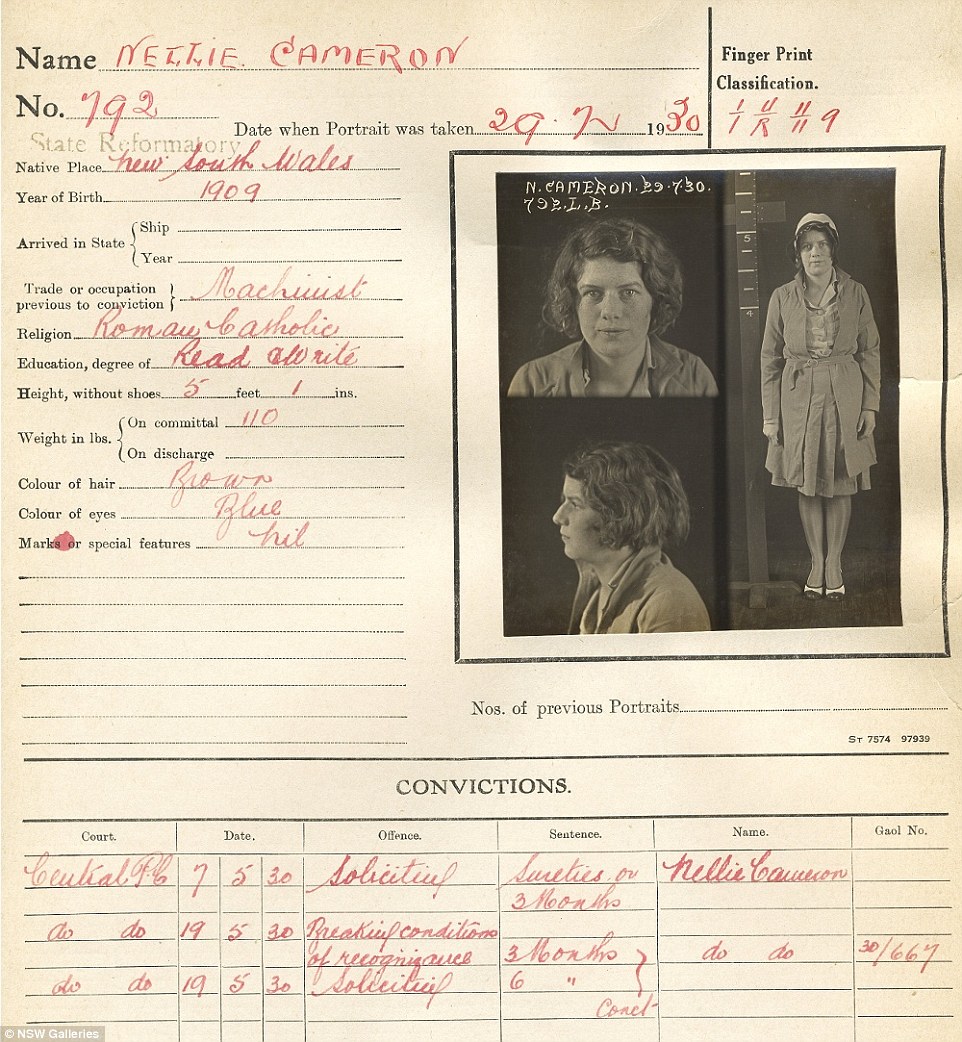 Name NELLIE CAMERON
Finger Print
Classification.
No. 792
Date when Portrait was taken 29. 7 1930
1 U 11 9
1 R 11
State Reformatory
Native Place New South Wales
Year of Birth 1909
Arrived in State { Ship
Year
Trade or occupation
previous to conviction } Machinist
Religion Roman Catholic
Education, degree of Read & Write
Height, without shoes 5 feet 1 ins.
Weight in lbs. { On committal 110
On discharge
Colour of hair Brown
Colour of eyes Blue
Marks or special features Nil
N. CAMERON. 29.7.30.
792.L.B.
5
4
Nos. of previous Portraits
ST 7574 97939
CONVICTIONS.
Court. Date. Offence. Sentence. Name. Gaol No.
Central P.C 7 5 30 Soliciting Sureties or Nellie Cameron
3 Months
do do 19 5 30 Breaking conditions
of recognizance 3 Months do do 30/667
do do 19 5 30 Soliciting 6 "
Conct
© NSW Galleries